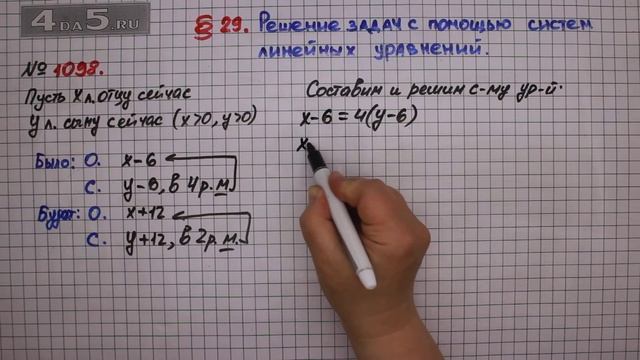 4DA5.RU
§ 29. Решение задач с помощью систем
линейных уравнений.
№ 1098.
Пусть x л. отцу сейчас
y л. сыну сейчас (x>0, y>0)
Было: О. x-6
С. y-6, в 4 р. м.
Будет: О. x+12
С. y+12, в 2 р. м.
Составим и решим с-му ур-й.
x-6=4(y-6)
x